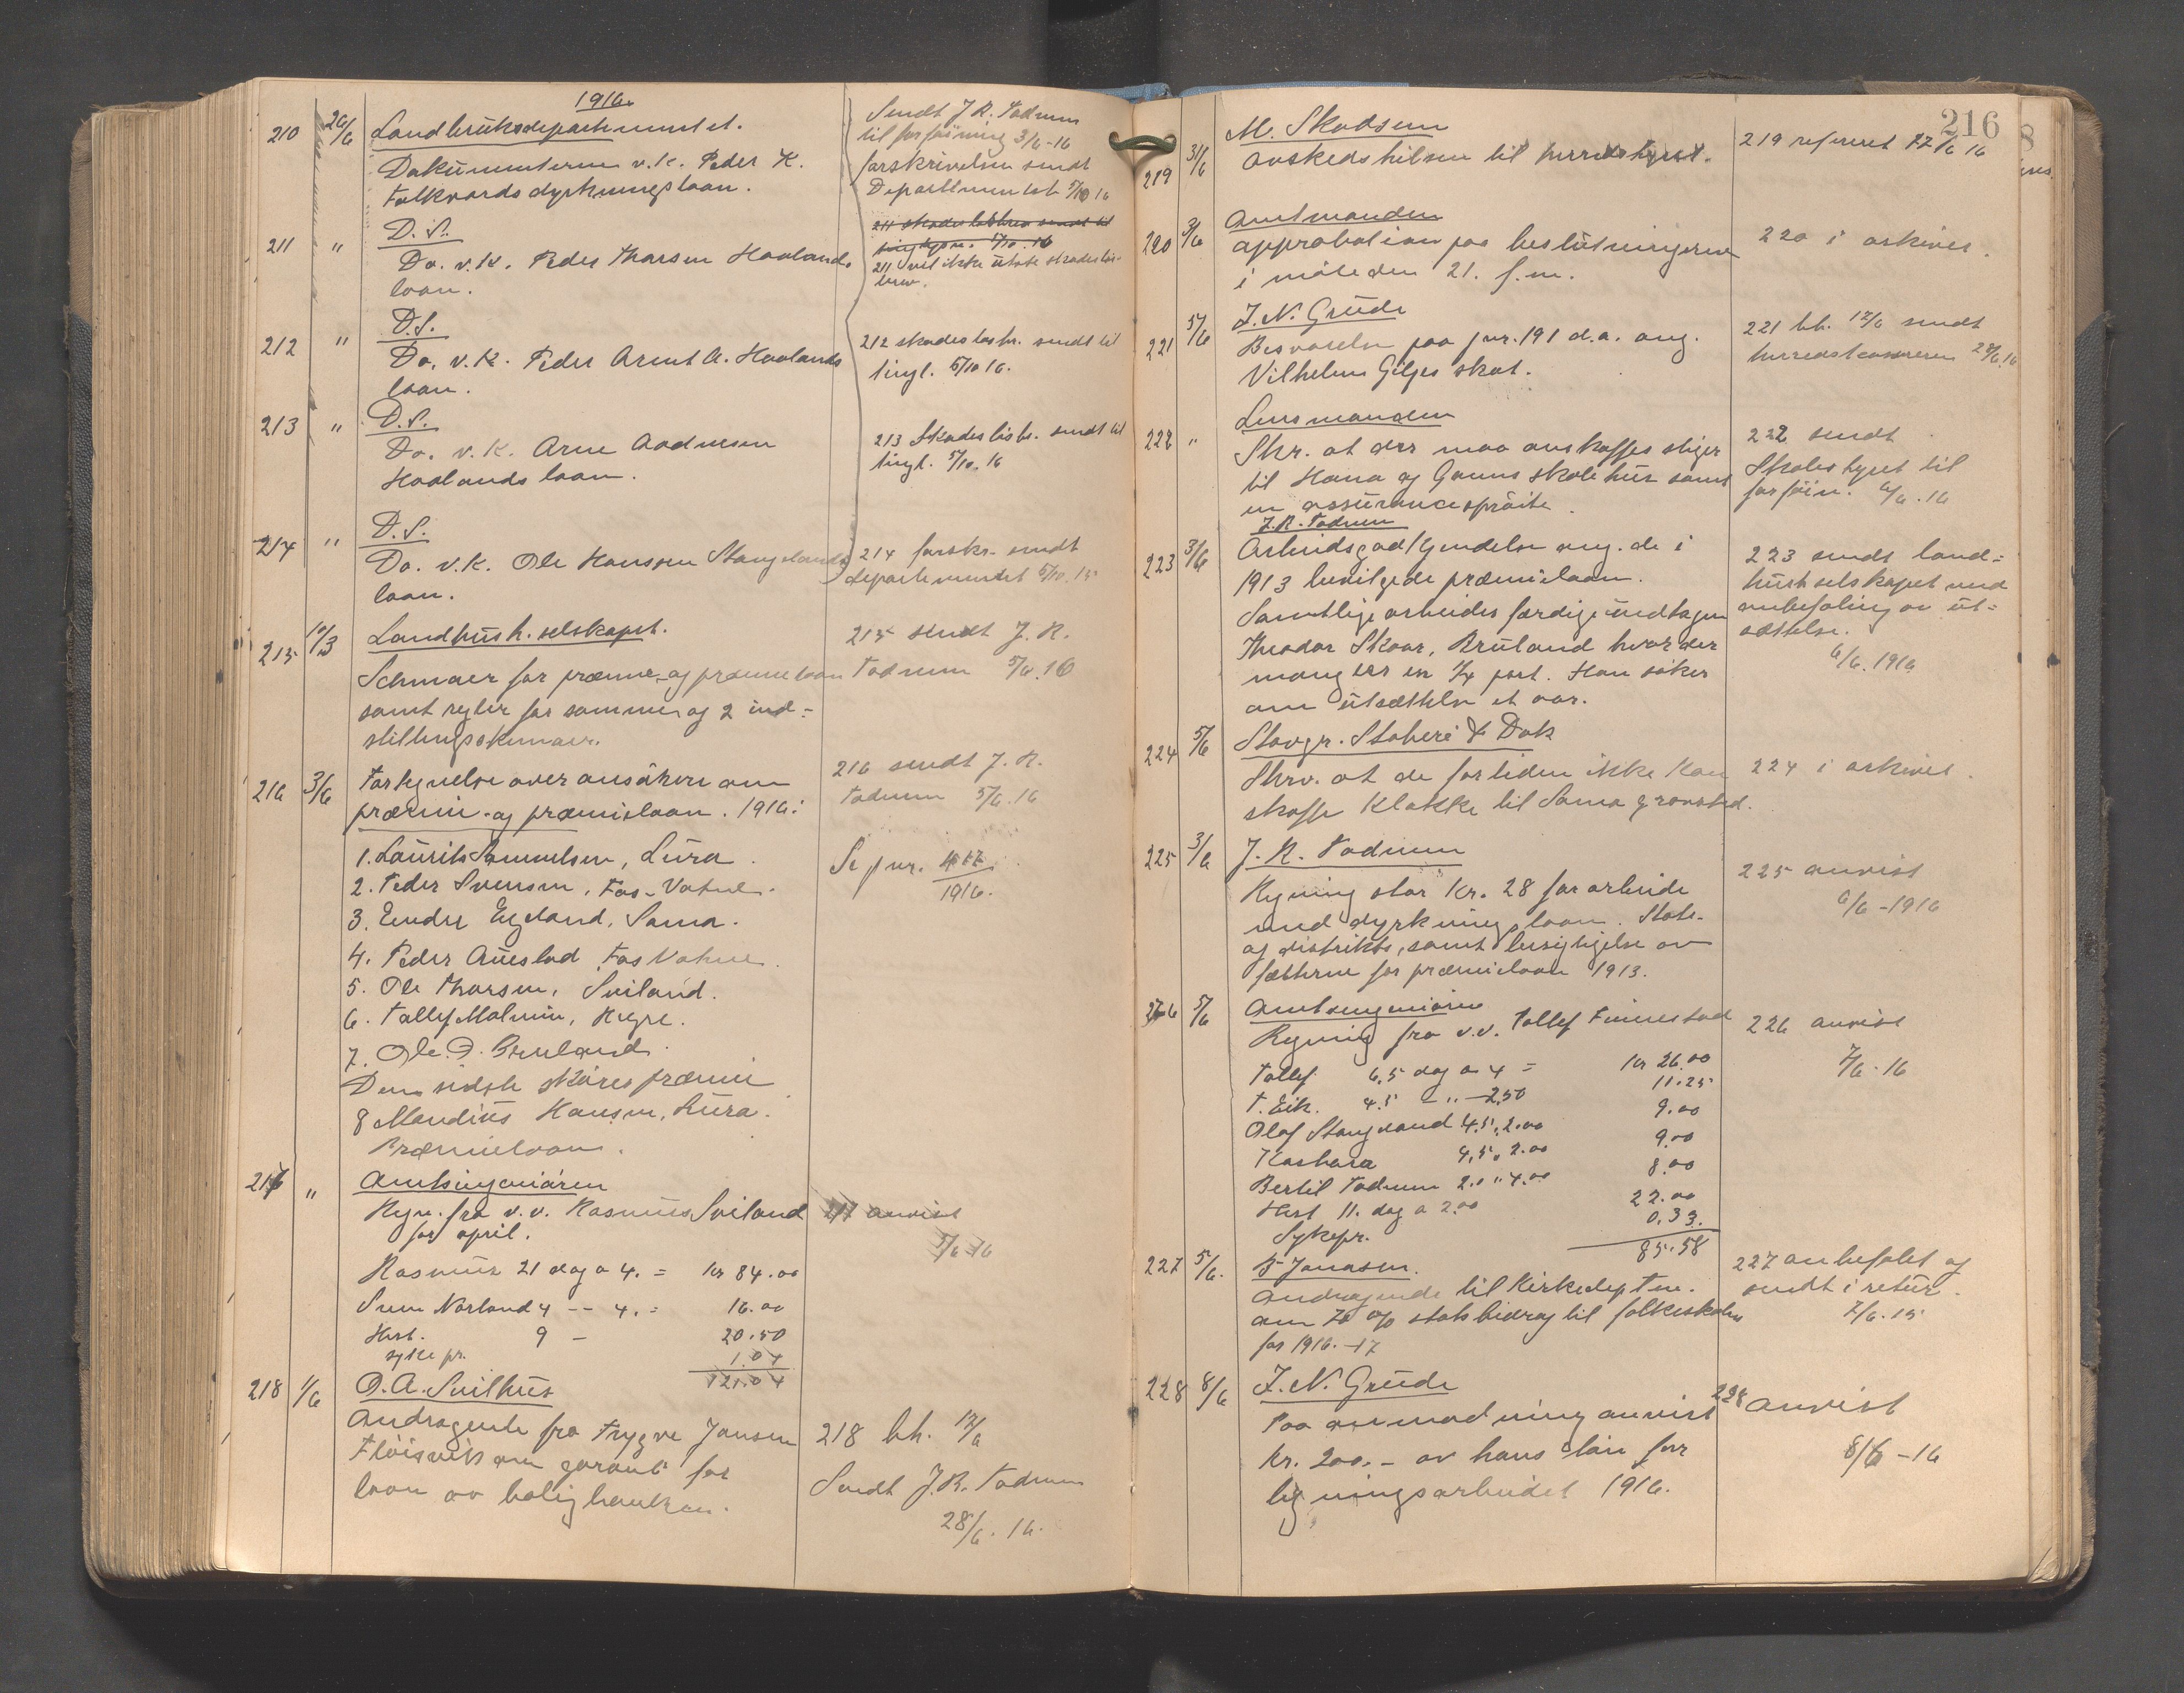 1916.
210 26/6 Landbruksdepartementet.
Dokumenterne v.k. Peder K.
Folkvords dyrkningslaan.
Sendt J. R. Todnem
til forføining 3/6-16
forskrivelsen sendt
Departementet 5/10 16
211 " D. S.
Do. v.k. Peder Thorsen Hoolands
laan.
211 skadesløsbrev sendt til
tinglysn. 5/10. 16
211 vil ikke utste skadesløs-
brev.
212 " D.S.
Do. v.k. Peder Arent A. Hoolands
laan.
212 skadesløsbr. sendt til
tingl. 5/10 16.
213 " D.S.
Do. v.k. Arne Aadnesen
Hoolands laan.
213 Skadesløsbr. sendt til
tingl. 5/10. 16
214 " D.S.
Do. v.k. Ole Hanssen Stangelands
laan.
214 forskr. sendt
departementet 5/10. 15
215 10/3 Landhush. selskapet.
Schmaer for præmie- og præmielaan
samt regler for samme og 2 ind-
stillingsskemaer.
215 sendt J. R.
Todnem 5/6.16
216 3/6 Fortegnelse over ansøkere om
præmie- og præmielaan. 1916:
216 sendt J. R.
Todnem 5/6.16
1. Laurits Samuelsen, Lura.
2. Peder Svensen, Fos-Vatne.
3. Endre Egeland, Soma.
Se jnr. 417
1916.
4. Peder Auestad Fos Vatne.
5. Ole Thorsen, Sviland.
6. Tollef Malmin, Hegre.
7. Ole D. Bruland.
Den sidste søkes præmie
8 Mandius Hansen, Lura.
Præmielaan.
217 " Amtsingeniøren
Regn. fra v.v. Rasmus Sviland
for april.
217 anvist
5/6-16
Rasmus 21 dag a 4. = kr 84.00
Sven Norland 4 -- 4. = 16.00
Hest. 9 - 20.50
sykepr. 1.04
121.04
218 1/6 O. A. Svilhus
Andragende fra Trygve Jonsen
Fløisvik om garanti for
laan av boligbanken.
218 bh. 12/6
Sendt J. R. Todnem
28/6. 16.
216
219 31/6 M. Skadsem
Avskedshilsen til herredstyret.
219 referert 12/6 16
220 3/6 Amtmanden
Approbation paa beslutningerne
i møte den 21. f.m.
220 i arkivet.
221 5/6 J. N. Grude
Besvarelse paa jnr. 191 d.a. ang.
Vilhelm Giljes skat.
221 bh. 12/6 sendt
herredskasseren 28/6.16
222 " Lensmanden
Skr. at der maa anskaffes stiger
til Hana og Ganns skolehus samt
en assurancesprøite.
222 sendt
Skolestyret til
forføin. 6/6.16
J. R. Todnem
223 3/6 Arbeidsgodkjendelse ang. de i
1913 bevilgede præmielaan.
Samtlige arbeider færdige undtagen
Theodor Skaar, Bruland hvor der
mangler en 1/4 part. Han søker
om utsættelse et aar.
223 sendt land-
hush selskapet med
anbefaling av ut-
sættelse.
6/6.1916
224 5/6 Stavgr. Støberi & Dok
Skrv. at de for tiden ikke kan
skaffe klokke til Soma gravsted.
224 i arkivet.
225 3/6 J. R. Todnem
Regning stor kr. 28 for arbeide
med dyrkningslaan. Stats-
og distrikts, samt besigtigelse av
fætterne for præmielaan 1913.
225 anvist
6/6-1916
226 5/6 Amtsingeniøren
Regning fra v.v. Tollef Finnestad
226 anvist
7/6-16
Tollef 6,5 dag a 4 = kr 26.00
T. Eik. 4.5 - " - 2.50 11.25
Olaf Stangeland 4,5 " 2.00 9.00
Kashara 4,5 " 2.00 9.00
Bertil Todnem 2.0 " 4.00 8.00
Hest 11. dag a 2.00 22.00
Sykepr. 0.33.
85.58
227 5/6. B Jonasen.
Andragende til Kirkedepten.
om 70 o/o statsbidrag til folkeskolen
for 1916.-17
227 anbefalet og
sendt i retur.
7/6.15
228 8/6 J. N. Grude
Paa anmodning anvist
kr. 200.- av hans løn for
ligningsarbeidet 1916.
228 anvist
8/6-16